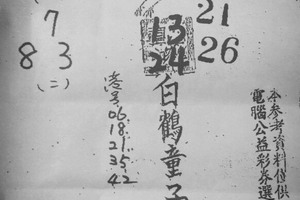 7
8 3
(二)
13
24
21
26
白鶴童子
壱号06.
18.
21.
35.
42
本參考資料僅供
電腦公益彩券選